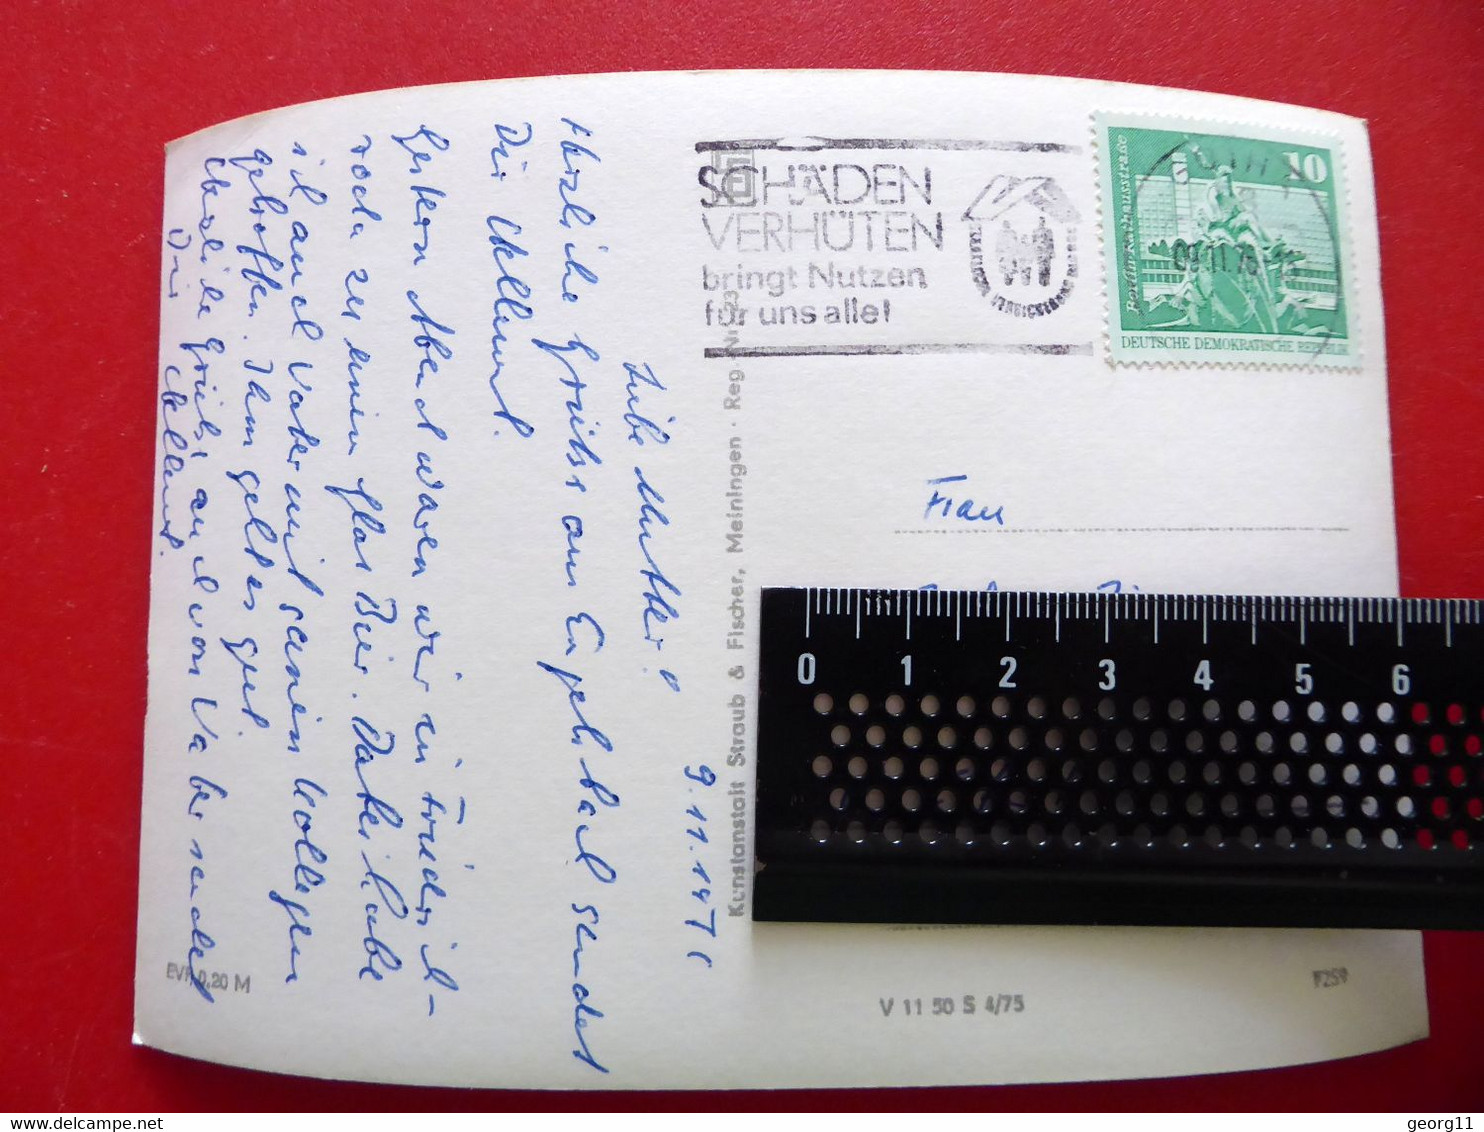 SCHÄDEN
VERHÜTEN
bringt Nutzen
für uns alle!
10
Berlin, Rathausstraße
DEUTSCHE DEMOKRATISCHE REPUBLIK
09.11.76
Frau
9.11.197
Liebe Mutter!
Herzliche Grüße aus Engelthal sendet
Dir Hellmut.
Gestern Abend waren wir in Friedrich-
roda zu einem Glas Bier. Dabei habe
ich auch Vater mit seinen Kollegen
getroffen. Ihm geht es gut.
Herzliche Grüße auch von Vater sendet
Dir Hellmut.
Kunstanstalt Straub & Fischer, Meiningen · Reg.-Nr.
EVP 0,20 M
V 11 50 S 4/75
F259
0 1 2 3 4 5 6
georg11